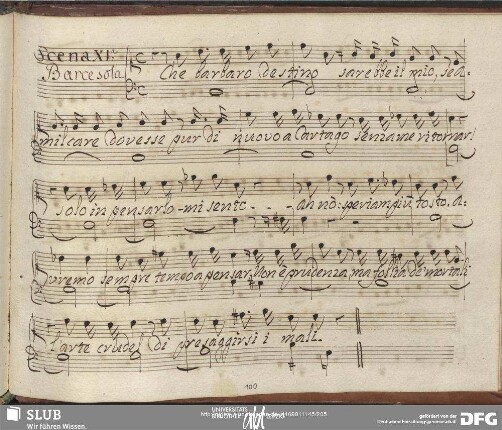 Scena XI.
Barce sola
Che barbaro destino sarebbe il mio, se A-
milcare dovesse pur di nuovo a Cartago senza me ritornar!
solo in pensarlo mi sento - - - ah no: speriam più tosto. a-
vremo sempre tempo a penar. Non è prudenza, ma follia de' mortali
l'arte crudel di presaggirsi i mali.
100
SLUB
Wir führen Wissen.
gefördert von der
DFG